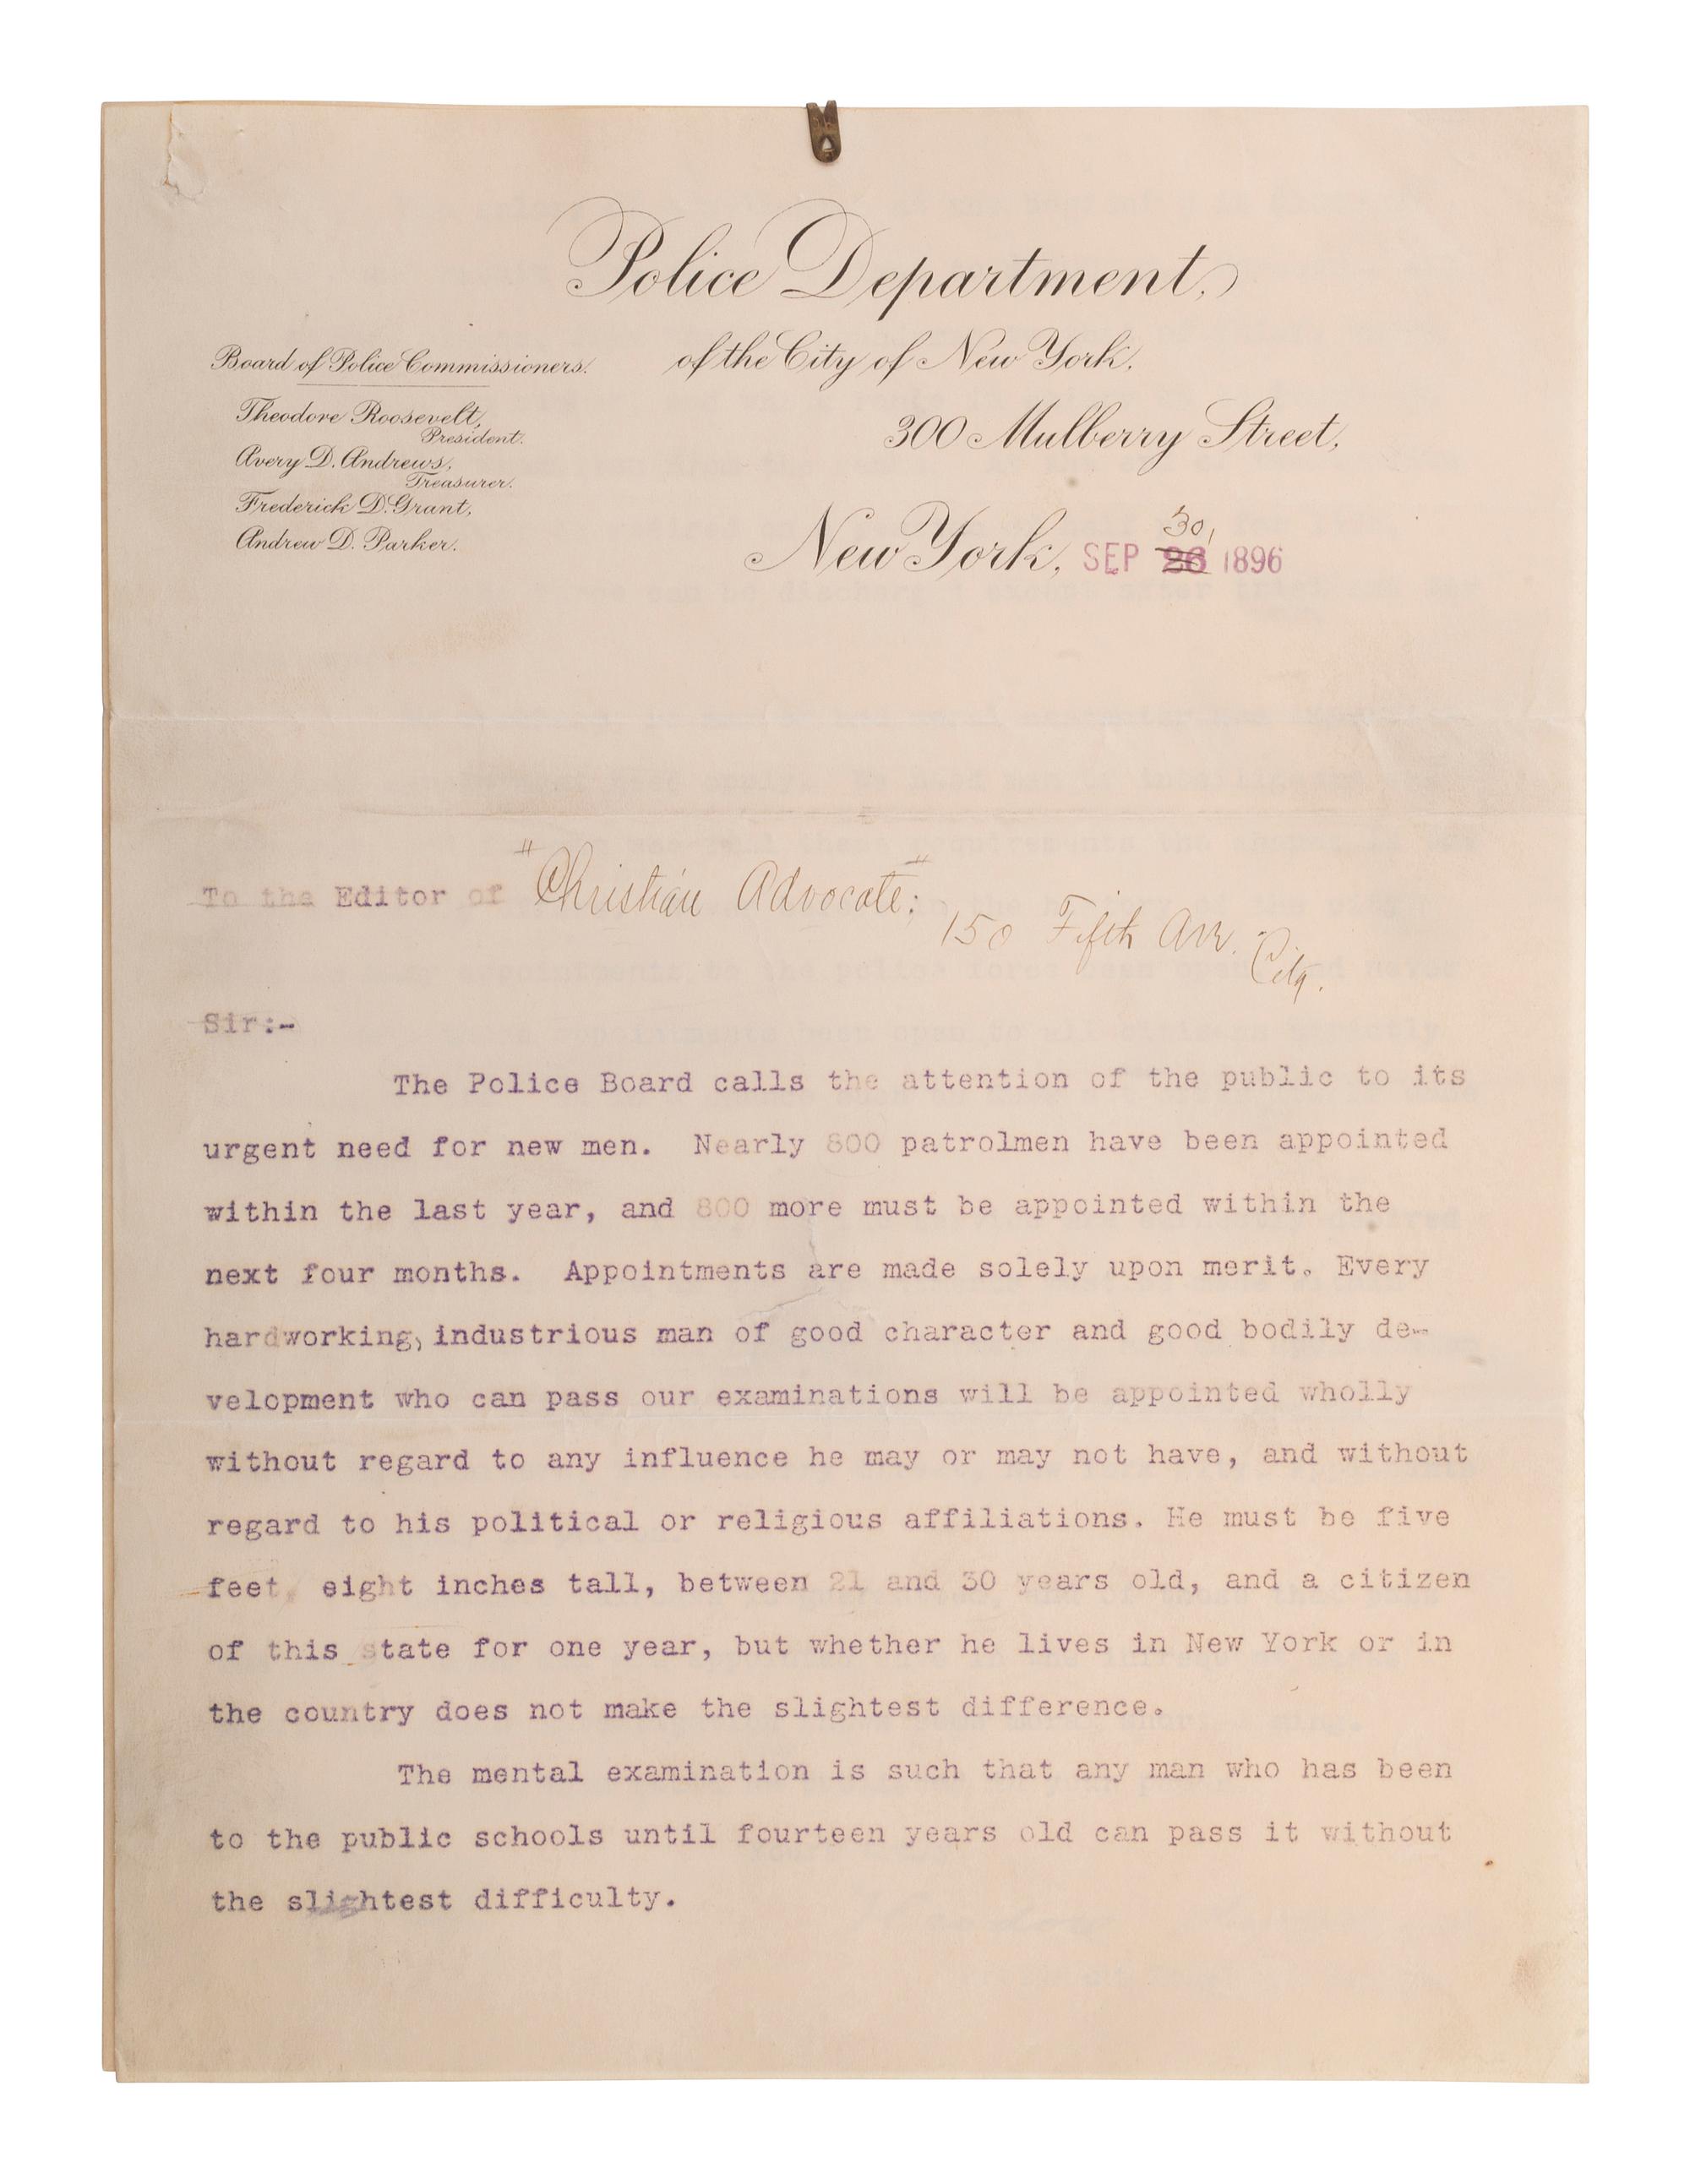 Police Department,
of the City of New York.
300 Mulberry Street,
Board of Police Commissioners.
Theodore Roosevelt,
President.
Avery D. Andrews,
Treasurer.
Frederick D. Grant,
Andrew D. Parker.
30,
New York, SEP 1896
To the Editor of "Christian Advocate:"
150 Fifth Ave. City.
Sir:-
The Police Board calls the attention of the public to its
urgent need for new men. Nearly 800 patrolmen have been appointed
within the last year, and 800 more must be appointed within the
next four months. Appointments are made solely upon merit. Every
hardworking, industrious man of good character and good bodily de-
velopment who can pass our examinations will be appointed wholly
without regard to any influence he may or may not have, and without
regard to his political or religious affiliations. He must be five
feet, eight inches tall, between 21 and 30 years old, and a citizen
of this state for one year, but whether he lives in New York or in
the country does not make the slightest difference.
The mental examination is such that any man who has been
to the public schools until fourteen years old can pass it without
the slightest difficulty.